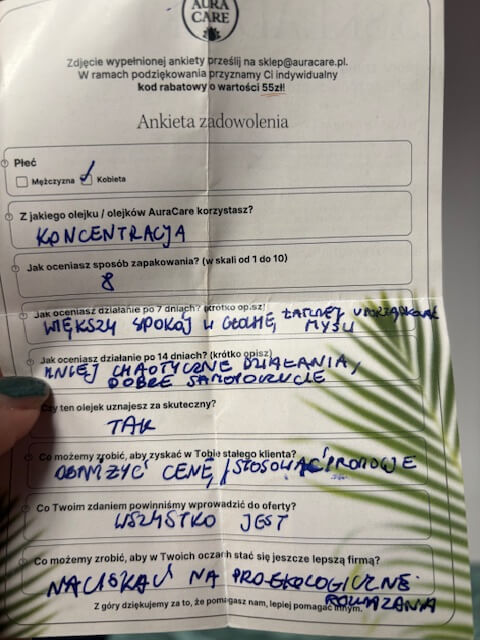 AURA
CARE
Zdjęcie wypełnionej ankiety prześlij na sklep@auracare.pl.
W ramach podziękowania przyznamy Ci indywidualny
kod rabatowy o wartości 55zł!
Ankieta zadowolenia
Płeć
Mężczyzna Kobieta
Z jakiego olejku / olejków AuraCare korzystasz?
KONCENTRACJA
Jak oceniasz sposób zapakowania? (w skali od 1 do 10)
8
Jak oceniasz działanie po 7 dniach? (krótko opisz)
WIĘKSZY SPOKÓJ W GŁOWIE, ŁATWIEJ UPORZĄDKOWAĆ
MYŚLI
Jak oceniasz działanie po 14 dniach? (krótko opisz)
MNIEJ CHAOTYCZNE DZIAŁANIA,
DOBRE SAMOPOCZUCIE
Czy ten olejek uznajesz za skuteczny?
TAK
Co możemy zrobić, aby zyskać w Tobie stałego klienta?
OBNIŻYĆ CENĘ / STOSOWAĆ PROMOCJE
Co Twoim zdaniem powinniśmy wprowadzić do oferty?
WSZYSTKO JEST
Co możemy zrobić, aby w Twoich oczach stać się jeszcze lepszą firmą?
NACISKAĆ NA PROEKOLOGICZNE
ROZWIĄZANIA
Z góry dziękujemy za to, że pomagasz nam, lepiej pomagać innym.